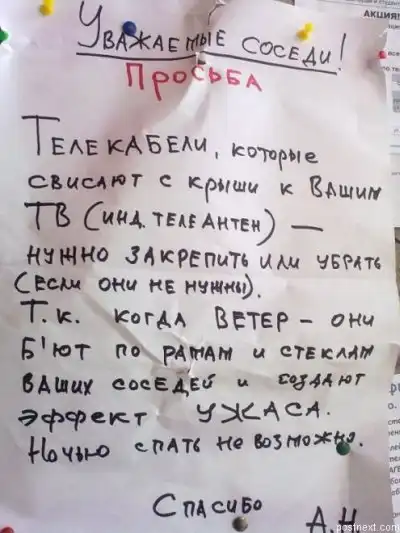 Уважаемые соседи!
Просьба
Телекабели, которые
свисают с крыши к Вашим
ТВ (инд. телеантен) —
нужно закрепить или убрать
(если они не нужны).
Т.к. когда ВЕТЕР – они
б'ют по рамам и стеклам
ваших соседей и создают
эффект УЖАСА.
Ночью спать не возможно.
Спасибо
А.Н
АКЦИЯ!
postnext.com